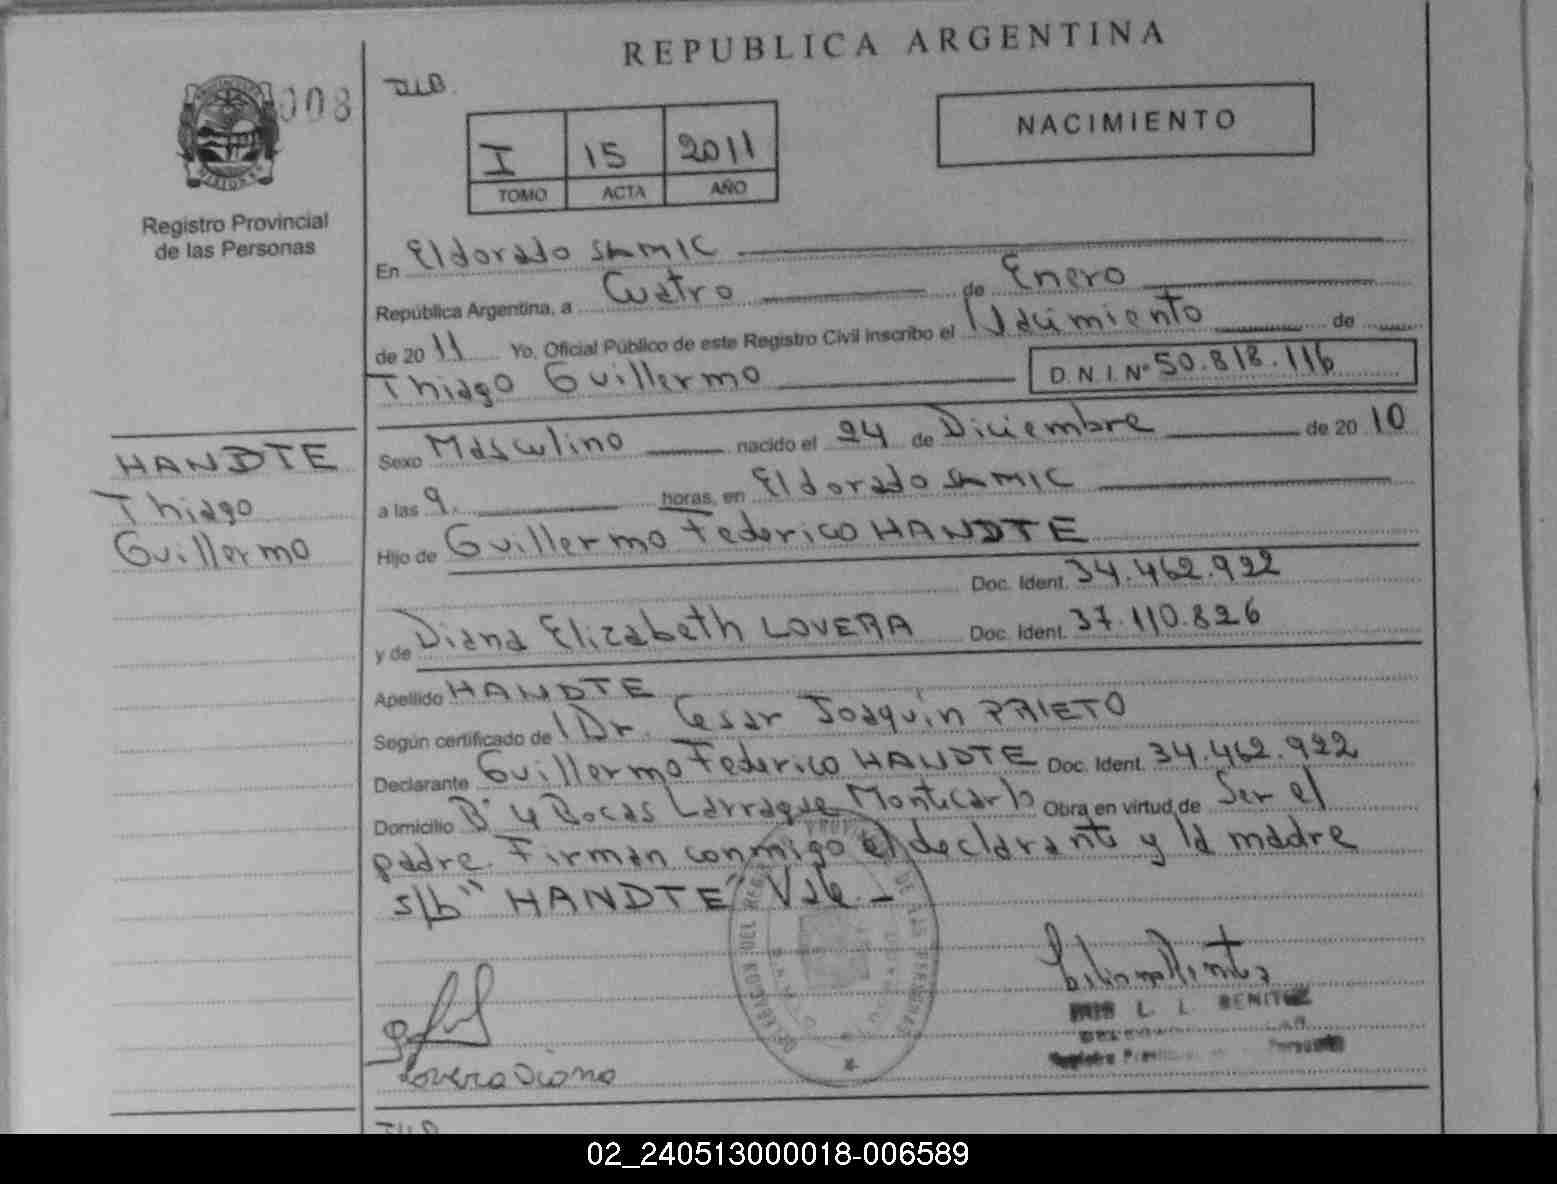 REPUBLICA ARGENTINA
008
DLB.
I 15 2011
TOMO ACTA AÑO
NACIMIENTO
Registro Provincial
de las Personas
En Eldorado SAMIC
República Argentina, a Cuatro de Enero
de 20 11 Yo, Oficial Público de este Registro Civil inscribo el Nacimiento de
Thiago Guillermo D.N.I. Nº 50.818.116
HANDTE
Thiago
Guillermo
Sexo Masculino nacido el 24 de Diciembre de 20 10
a las 9. horas, en Eldorado SAMIC
Hijo de Guillermo Federico HANDTE
Doc. Ident. 34.462.922
y de Diana Elizabeth LOVERA Doc. Ident. 37.110.826
Apellido HANDTE
Según certificado de Dr. Cesar Joaquin PRIETO
Declarante Guillermo Federico HANDTE Doc. Ident. 34.462.922
Domicilio Bº 4 Bocas Larraque Montecarlo Obra en virtud de Ser el
padre. Firman conmigo el declarante y la madre
s/b "HANDTE" Vale.-
Lovera Diana
L. L. BENITEZ
02_240513000018-006589